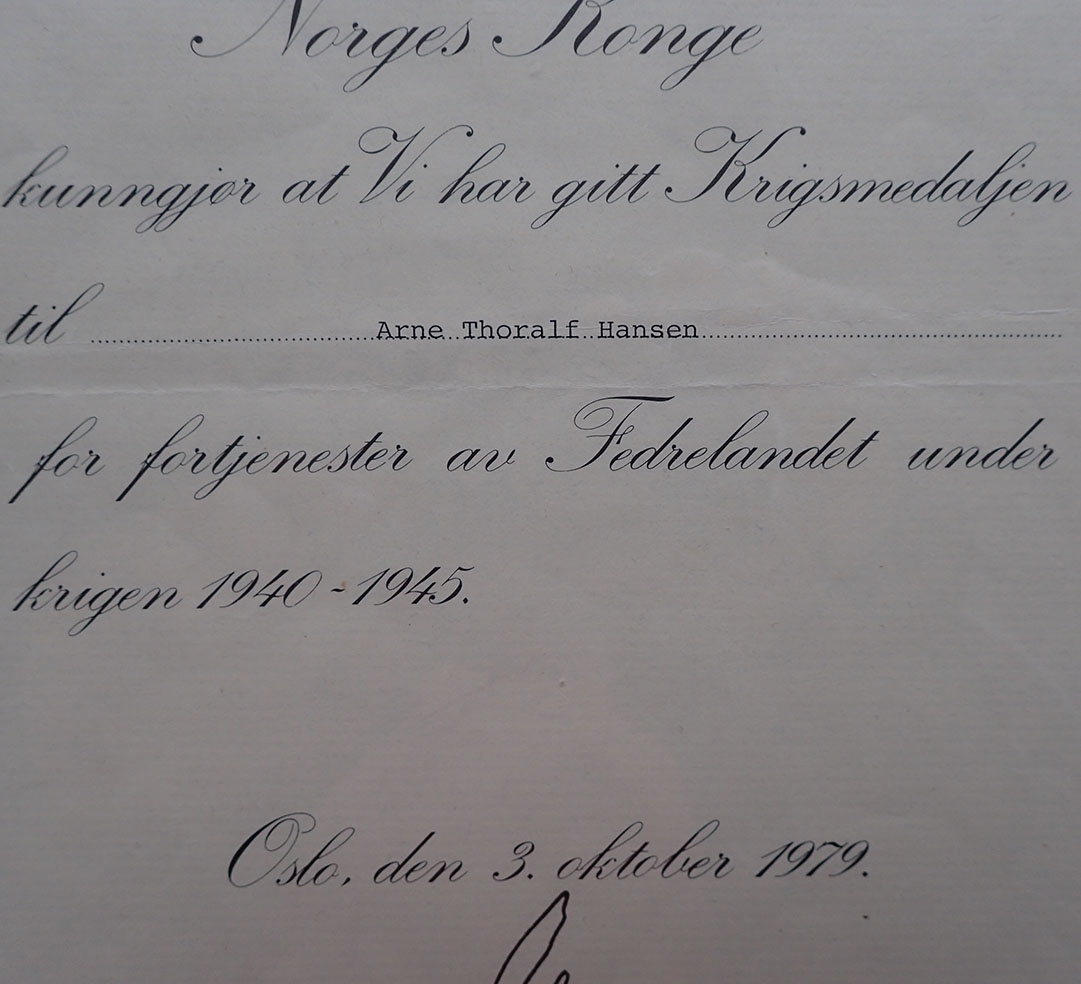 Norges Konge
kunngjør at Vi har gitt Krigsmedaljen
til Arne Thoralf Hansen
for fortjenester av Fedrelandet under
krigen 1940-1945.
Oslo, den 3. oktober 1979.